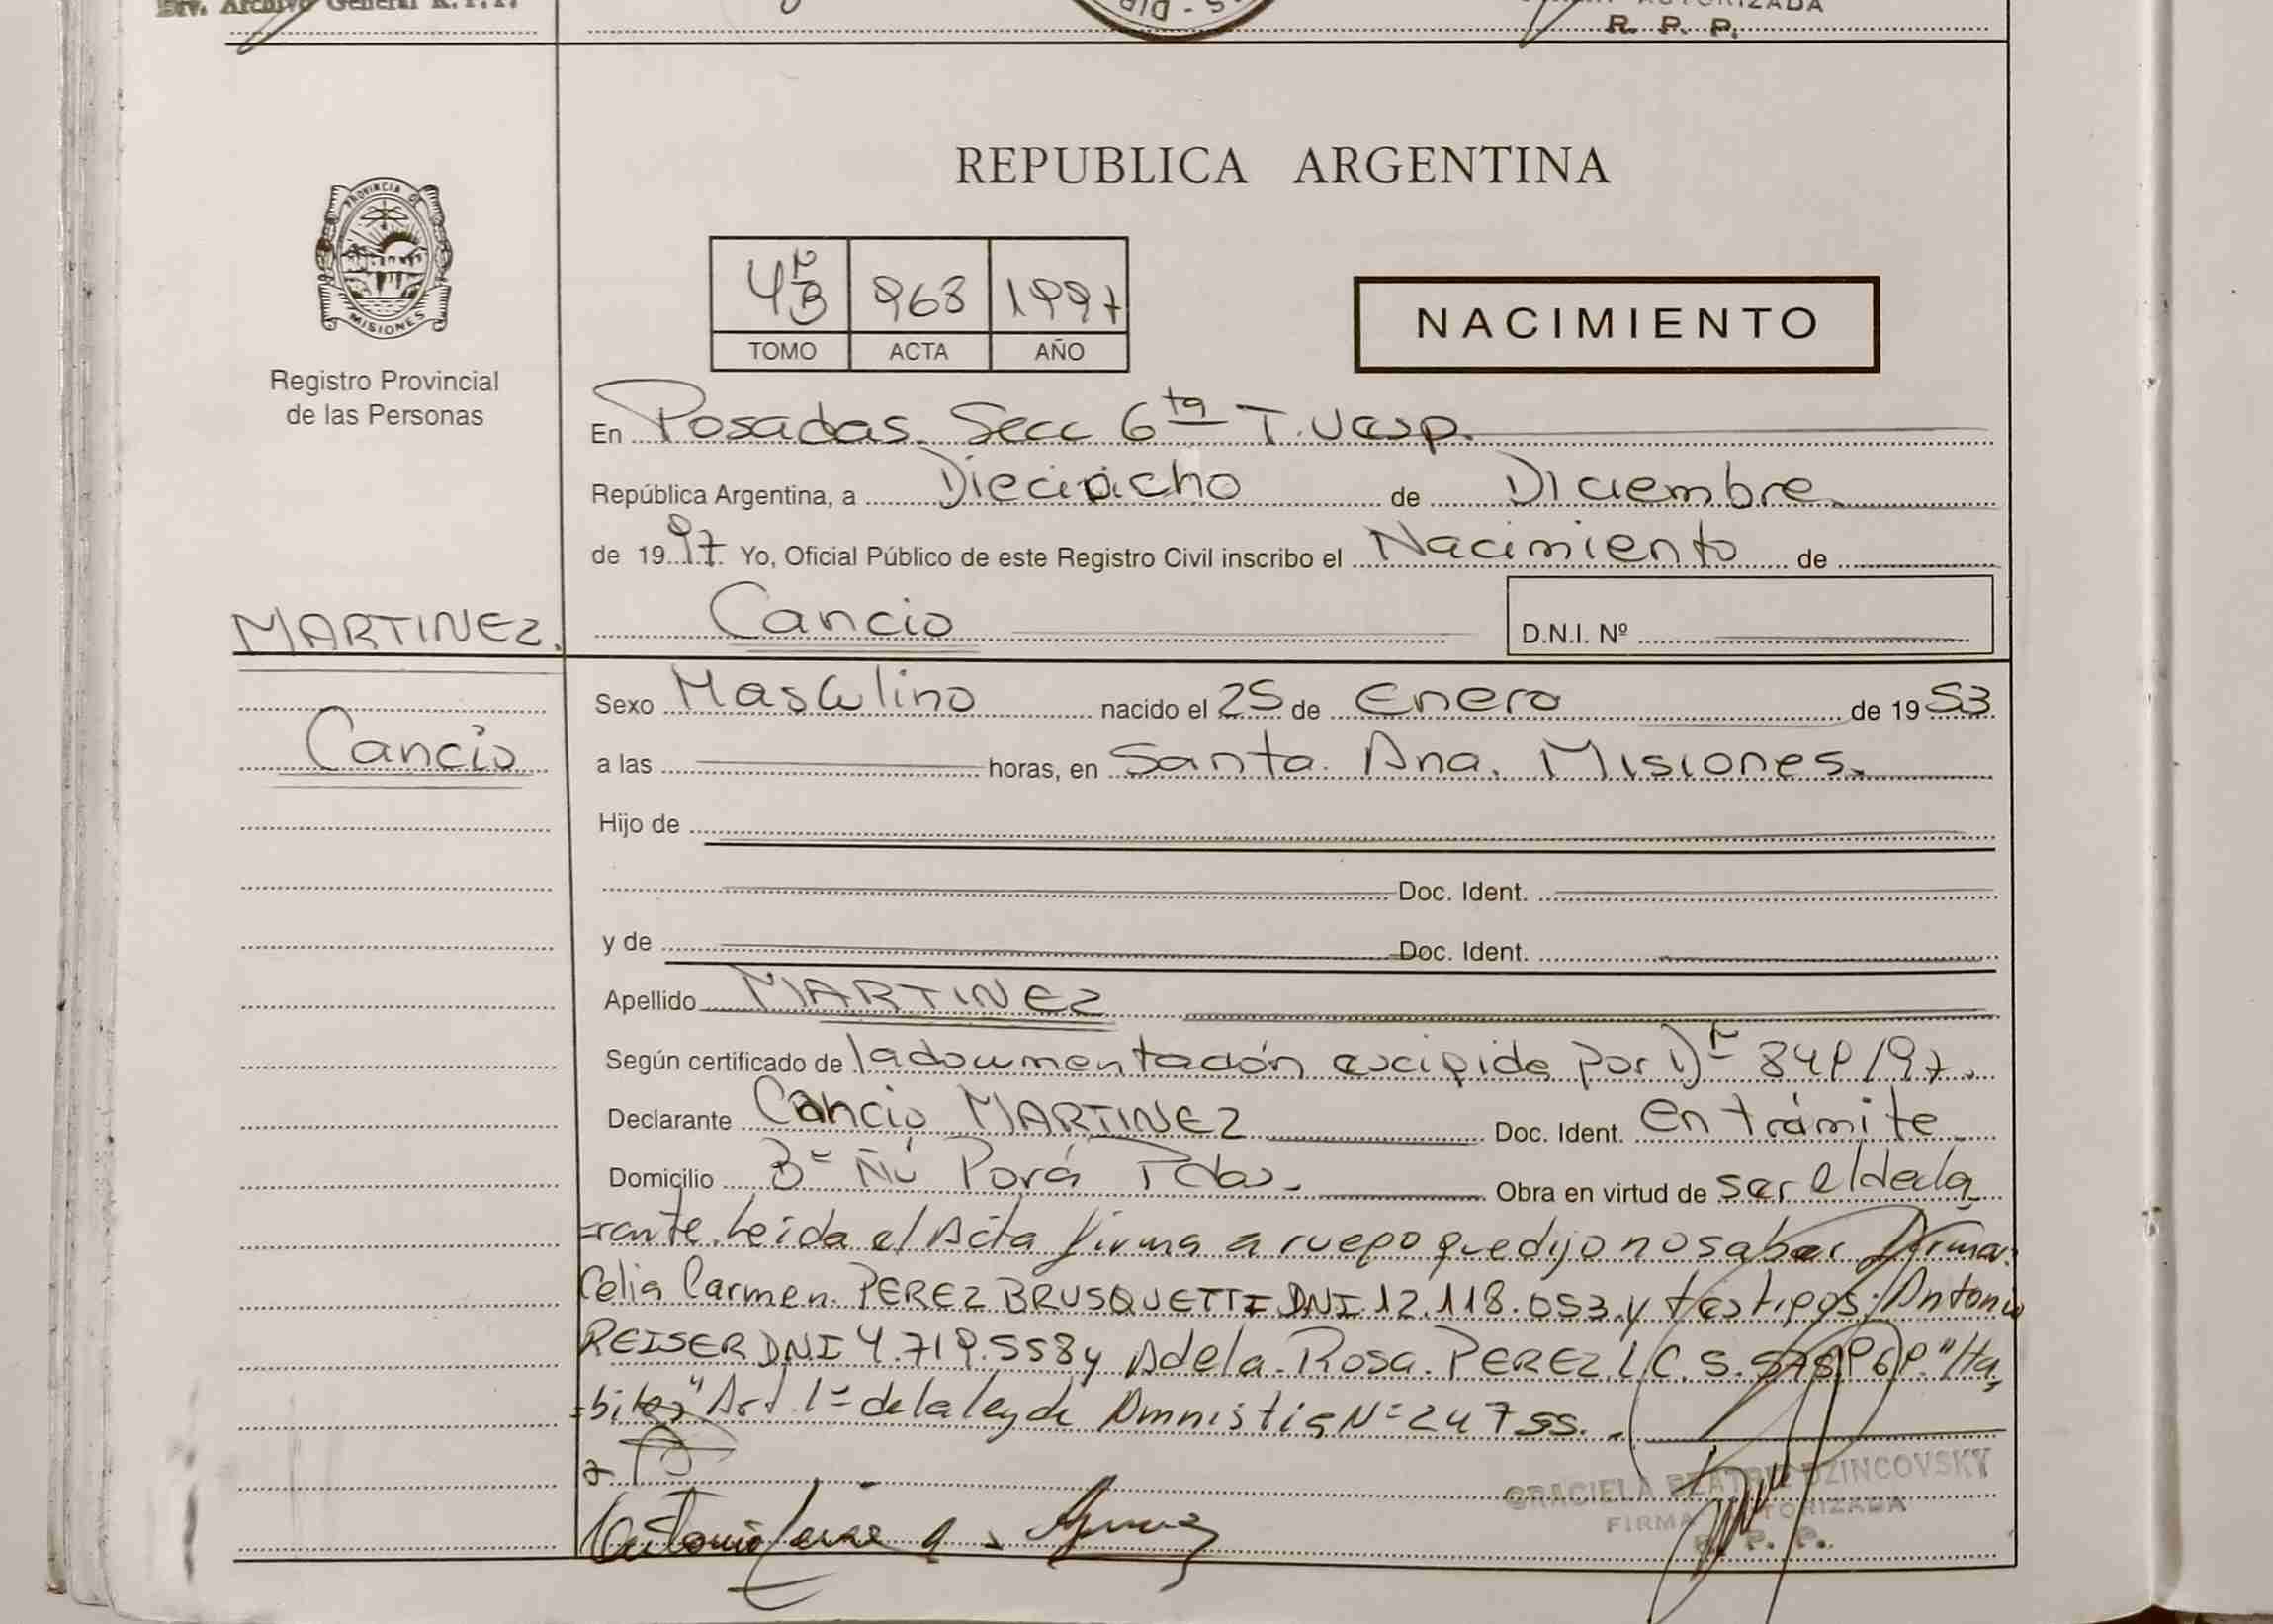 Div. Archivo General R.P.P.
AUTORIZADA
R. P. P.
REPUBLICA ARGENTINA
PROVINCIA DE
MISIONES
Registro Provincial
de las Personas
4º B 968 1997
TOMO ACTA AÑO
NACIMIENTO
En Posadas. Secc 6ta T. Vesp.
República Argentina, a Dieciocho de Diciembre
de 1997 Yo, Oficial Público de este Registro Civil inscribo el Nacimiento de
MARTINEZ. Cancio D.N.I. Nº
Sexo Masculino nacido el 25 de Enero de 1953
Cancio
a las horas, en Santa Ana. Misiones.
Hijo de
Doc. Ident.
y de Doc. Ident.
Apellido MARTINEZ
Según certificado de la documentación por Dº 849/97.
Declarante Cancio MARTINEZ Doc. Ident. en trámite
Domicilio Bº Ñú Porá Pdas. Obra en virtud de ser el decla
=rante. Leida el Acta firma a ruego que dijo no saber firmar:
Celia Carmen. PEREZ BRUSQUETTI DNI 12.118.053. y testigos: Antonio
REISER DNI 4.719.558 y Adela. Rosa. PEREZ L C. 5. "Há
=biles" Art. 1º de la ley de Amnistia Nº 24755.
GRACIELA BEATRIZ DZINCOVSKY
FIRMA AUTORIZADA
R. P. P.